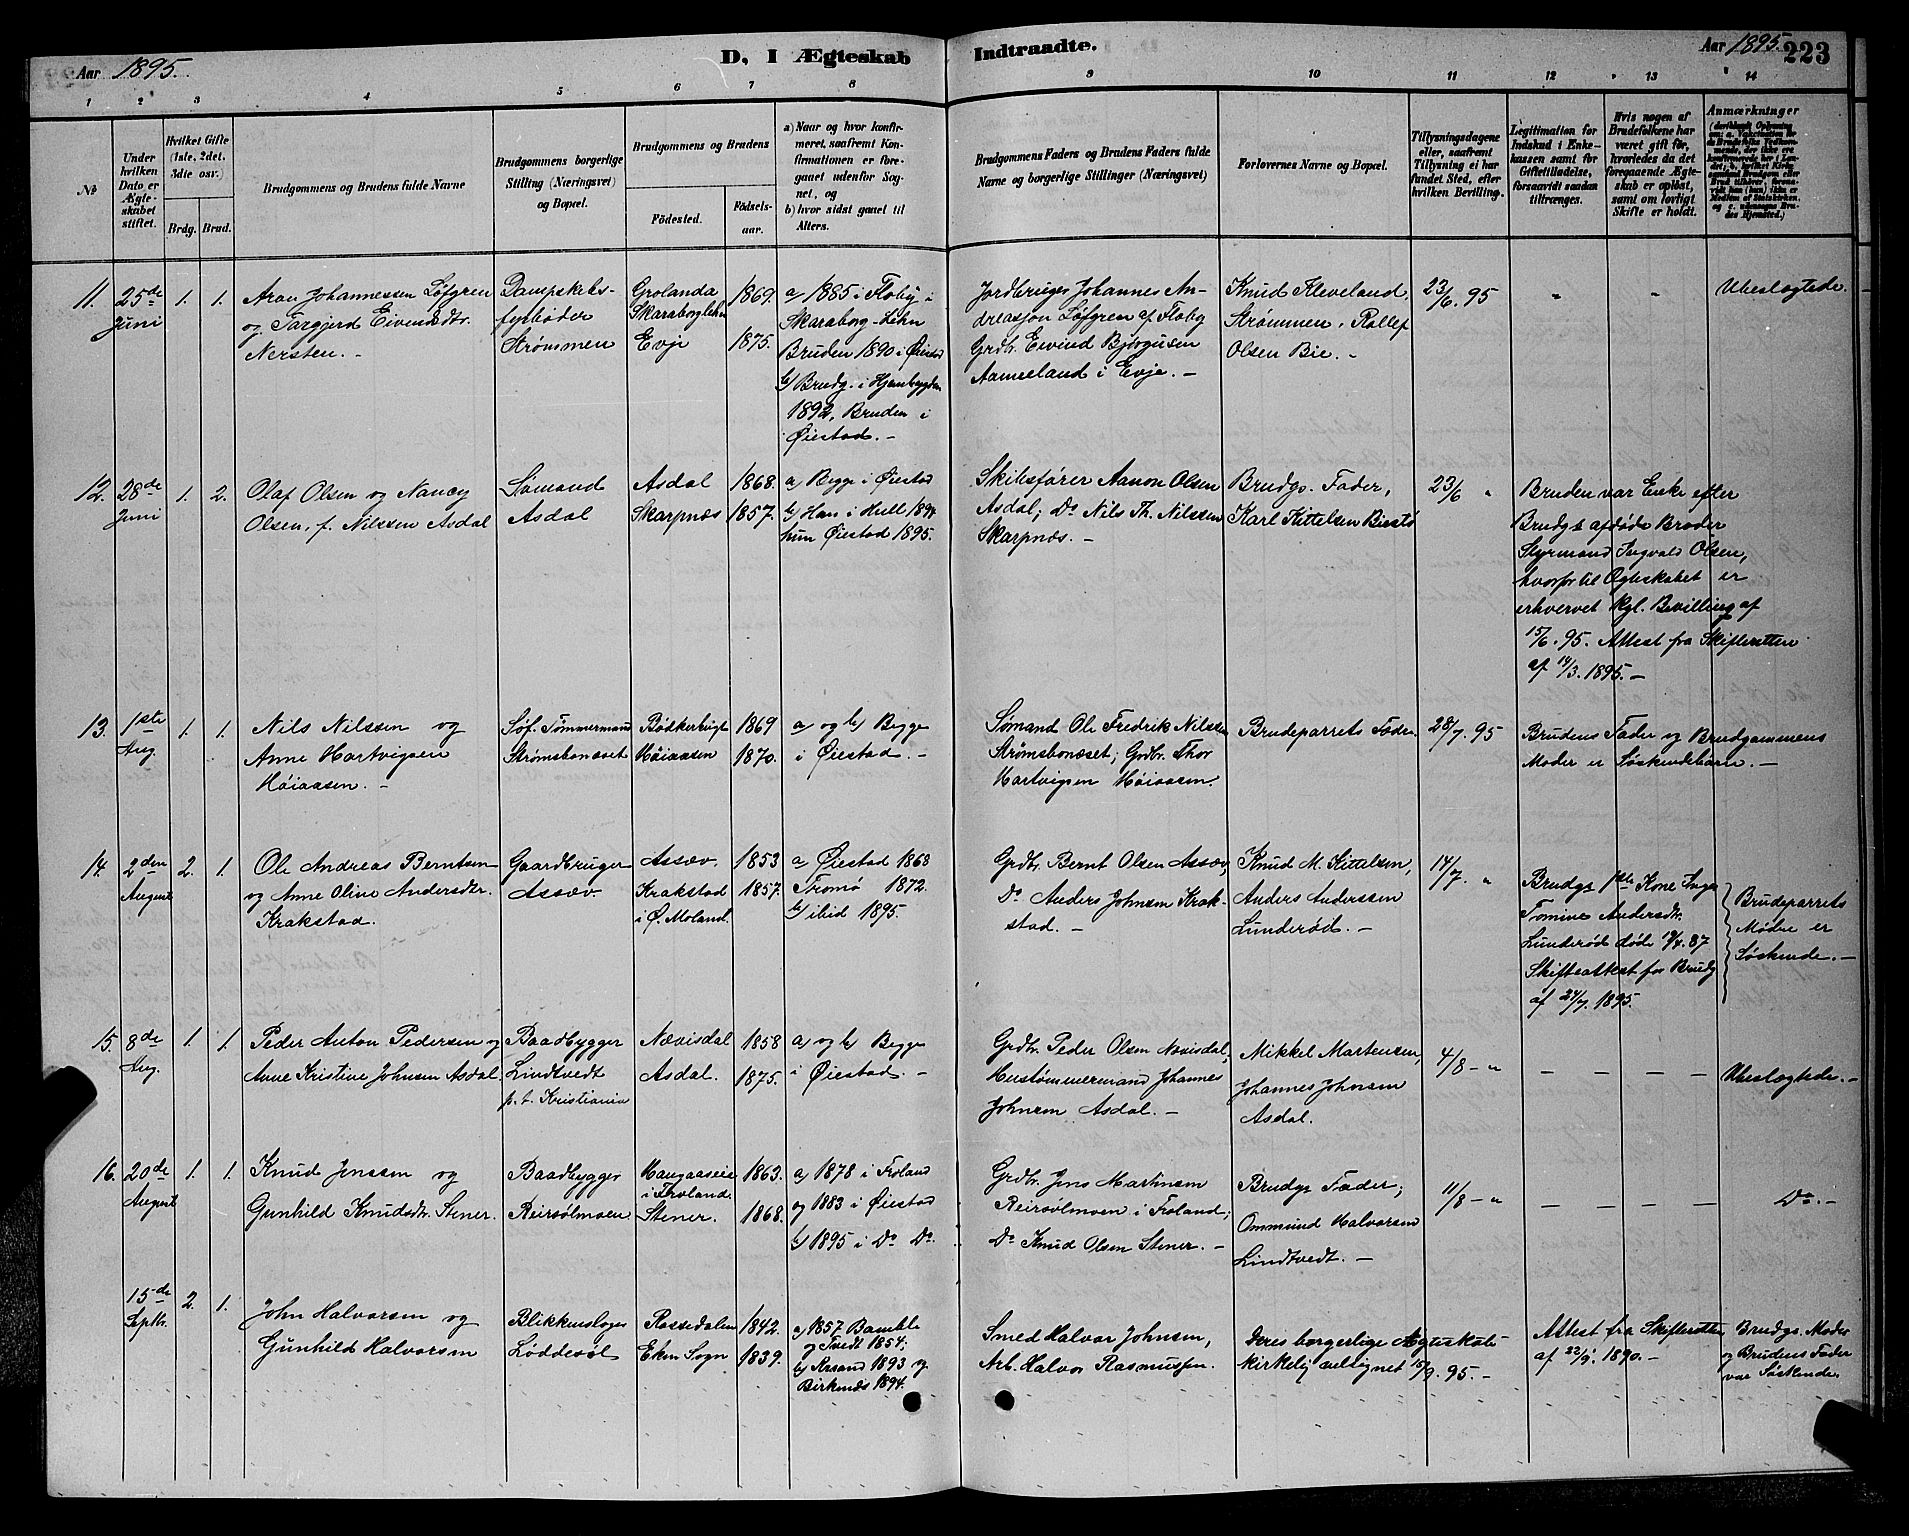 Aar 1895.
D, I Ægteskab Indtraadte.
Aar 1895. 223
1 2 3 4 5 6 7 8 9 10 11 12 13 14
No
Under hvilken Dato er Ægteskabet stiftet.
Hvilket Gifte (1ste, 2det, 3die osv.)
Brdg. Brud.
Brudgommens og Brudens fulde Navne
Brudgommens borgerlige Stilling (Næringsvei) og Bopæl.
Brudgommens og Brudens
Fødested. Fødselsaar.
a) Naar og hvor konfirmeret, saafremt Konfirmationen er foregaaet udenfor Sognet, og
b) hvor sidst gaaet til Alters.
Brudgommens Faders og Brudens Faders fulde Navne og borgerlige Stillinger (Næringsvei)
Forlovernes Navne og Bopæl.
Tillysningsdagene eller, saafremt Tillysning ei har fundet Sted, efter hvilken Bevilling.
Legitimation for Indskud i Enkekassen samt for Giftetilladelse, forsaavidt saadan tiltrænges.
Hvis nogen af Brudefolkene har været gift før, hvorledes da det foregaaende Ægteskab er opløst, samt om lovligt Skifte er holdt.
Anmærkninger
11. 25de Juni 1. 1.
Aron Johannessen Løfgren
og Targjerd Eivindsdtr.
Nersten. -
Dampskibs-
fyrbøder
Strømmen
Grolanda
Skaraborglehn
Evje
1869.
1875.
a) 1885 i Floby i
Skaraborg-Lehn
Bruden 1890 i Øiestad
b) Brudg. i
1892, Bruden i
Øiestad. -
Jordbruger Johannes An-
dreasson Løfgren af Floby
Grdbr. Eivind Bjorgusen
Aaneland i Evje. -
Knud Kleveland,
Strømmen, Rollef
Olsen Bie. -
23/6. 95
" "
Ubeslægtede.
12. 28de Juni 1. 2.
Olaf Olsen og Nancy
Olsen, f. Nilssen Asdal
Sømand
Asdal
Asdal
Skarpnæs
1868.
1857.
a) Begge i Øiestad
b) Han i Hull 1894
hun Øiestad 1895.
Skibsfører Aanon Olsen
Asdal; Do Nils Th. Nilssen
Skarpnæs. -
Brudgs. Fader,
Karl Kittelsen Biestø
23/6 "
Bruden var Enke efter
Brudgs afdøde Broder
Styrmand Ingvald Olsen,
hvorfor til Ægteskabet er
erhvervet kgl. Bevilling af
15/6. 95. Attest fra Skifteretten
af 14/3. 1895. -
13. 1ste Aug. 1. 1.
Nils Nilssen og
Anne Hartvigsen
Høiaasen. -
Søf. Tømmermand
Strømsbonæset
Bødkerbugt
Høiaasen
1869
1870.
a) og b) Begge
i Øiestad. -
Sømand Ole Fredrik Nilssen
Strømsbonæset; Grdbr. Thor
Hartvigsen Høiaasen.
Brudeparrets Fædre
28/7. 95
Brudens Fader og Brudgommens
Moder er Søskendebarn. -
14. 2den August 2. 1.
Ole Andreas Berntsen
og Anne Oline Andersdtr.
Krakstad.
Gaardbruger
Assæv.
Assæv.
Krakstad
i Ø. Moland.
1853
1857.
a) Øiestad 1868
Tromø 1872.
b) ibid 1895.
Grdbr. Bernt Olsen Assæv,
Do Anders Johnsen Krak-
stad. -
Knud M. Kittelsen,
Anders Anderssen
Lunderød. -
14/7. "
Brudgs 1ste Kone Inger
Tomine Andersdtr.
Lunderød døde 19/4. 87
Skifteattest for Brudg
af 24/7. 1895.
Brudeparrets
Mødre er
Søskende. -
15. 8de Aug. 1. 1.
Peder Anton Pedersen og
Anne Kristine Johnsen Asdal
Baadbygger
Lindtvedt
p. t. Kristiania
Nævisdal
Asdal.
1858
1875.
a) og b) Begge
i Øiestad. -
Grdbr. Peder Olsen Nævisdal,
Hustømmermand Johannes
Johnsen Asdal. -
Mikkel Martensen,
Johannes Johnsen
Asdal.
4/8 - "
- - - -
Ubeslægtede. -
16. 20de August 1. 1.
Knud Jenssen og
Gunhild Knudsdtr. Stener.
Baadbygger
Reirsølmoen
Haugaaseie
i Froland.
Stener.
1863.
1868.
a) 1878 i Froland
og 1883 i Øiestad
b) 1895 i Do Do.
Grdbr. Jens Martinsen
Reirsølmoen i Froland;
Do Knud Olsen Stener. -
Brudgs Fader;
Ommund Halvorsen
Lindtvedt. -
11/8 - "
- - - -
Do. -
15de Septbr. 2. 1.
John Halvorsen og
Gunhild Halvorsen
Blikkenslager
Løddesøl
Rossedalen
Eken Sogn
1842.
1839.
a) 1857 Bamble
og Tvedt 1854;
b) 1893 og
Birkenæs 1894.
Smed Halvor Johnsen,
Arb. Halvor Rasmussen.
Deres borgerlige Ægteskab
kirkelig velsignet 15/9. 95. -
Attest fra Skifteretten
af 22/9. 1890. -
Brudgs. Moder
og Brudens Fader
var Søskende.